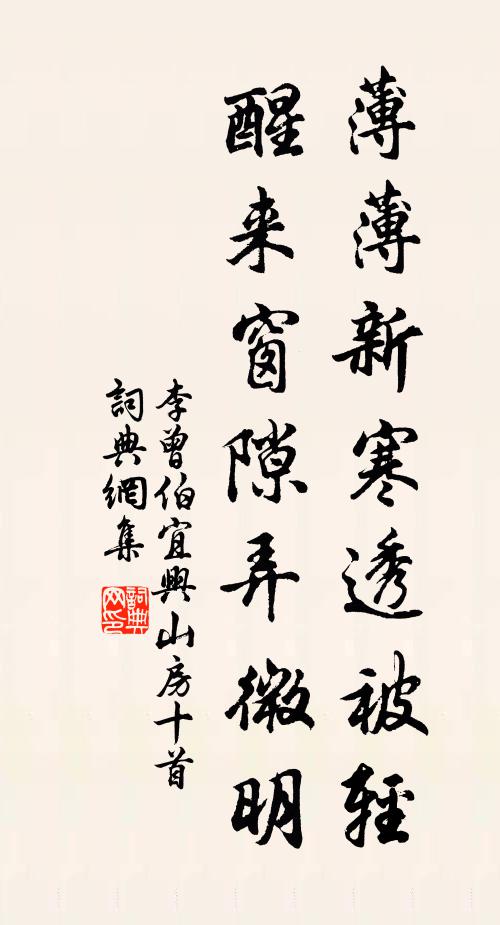 薄薄新寒透被輕
醒来窗隙弄微明
李曾伯宜興山房十首
詞典網集
詞典网印